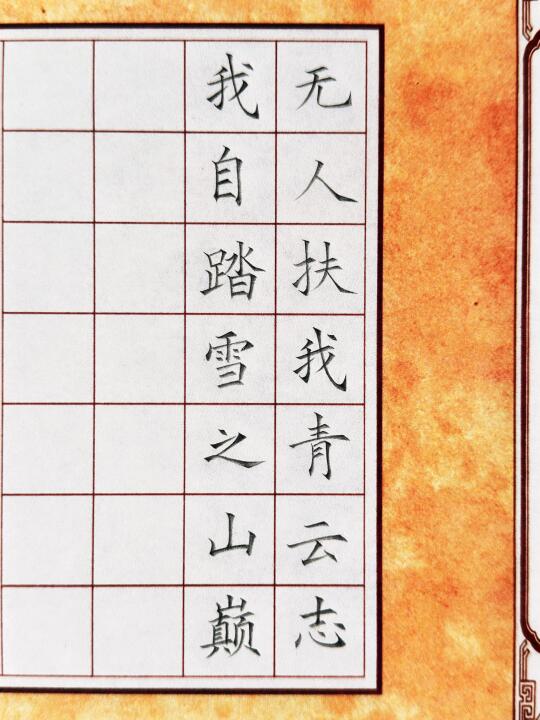 无人扶我青云志
我自踏雪之山巅